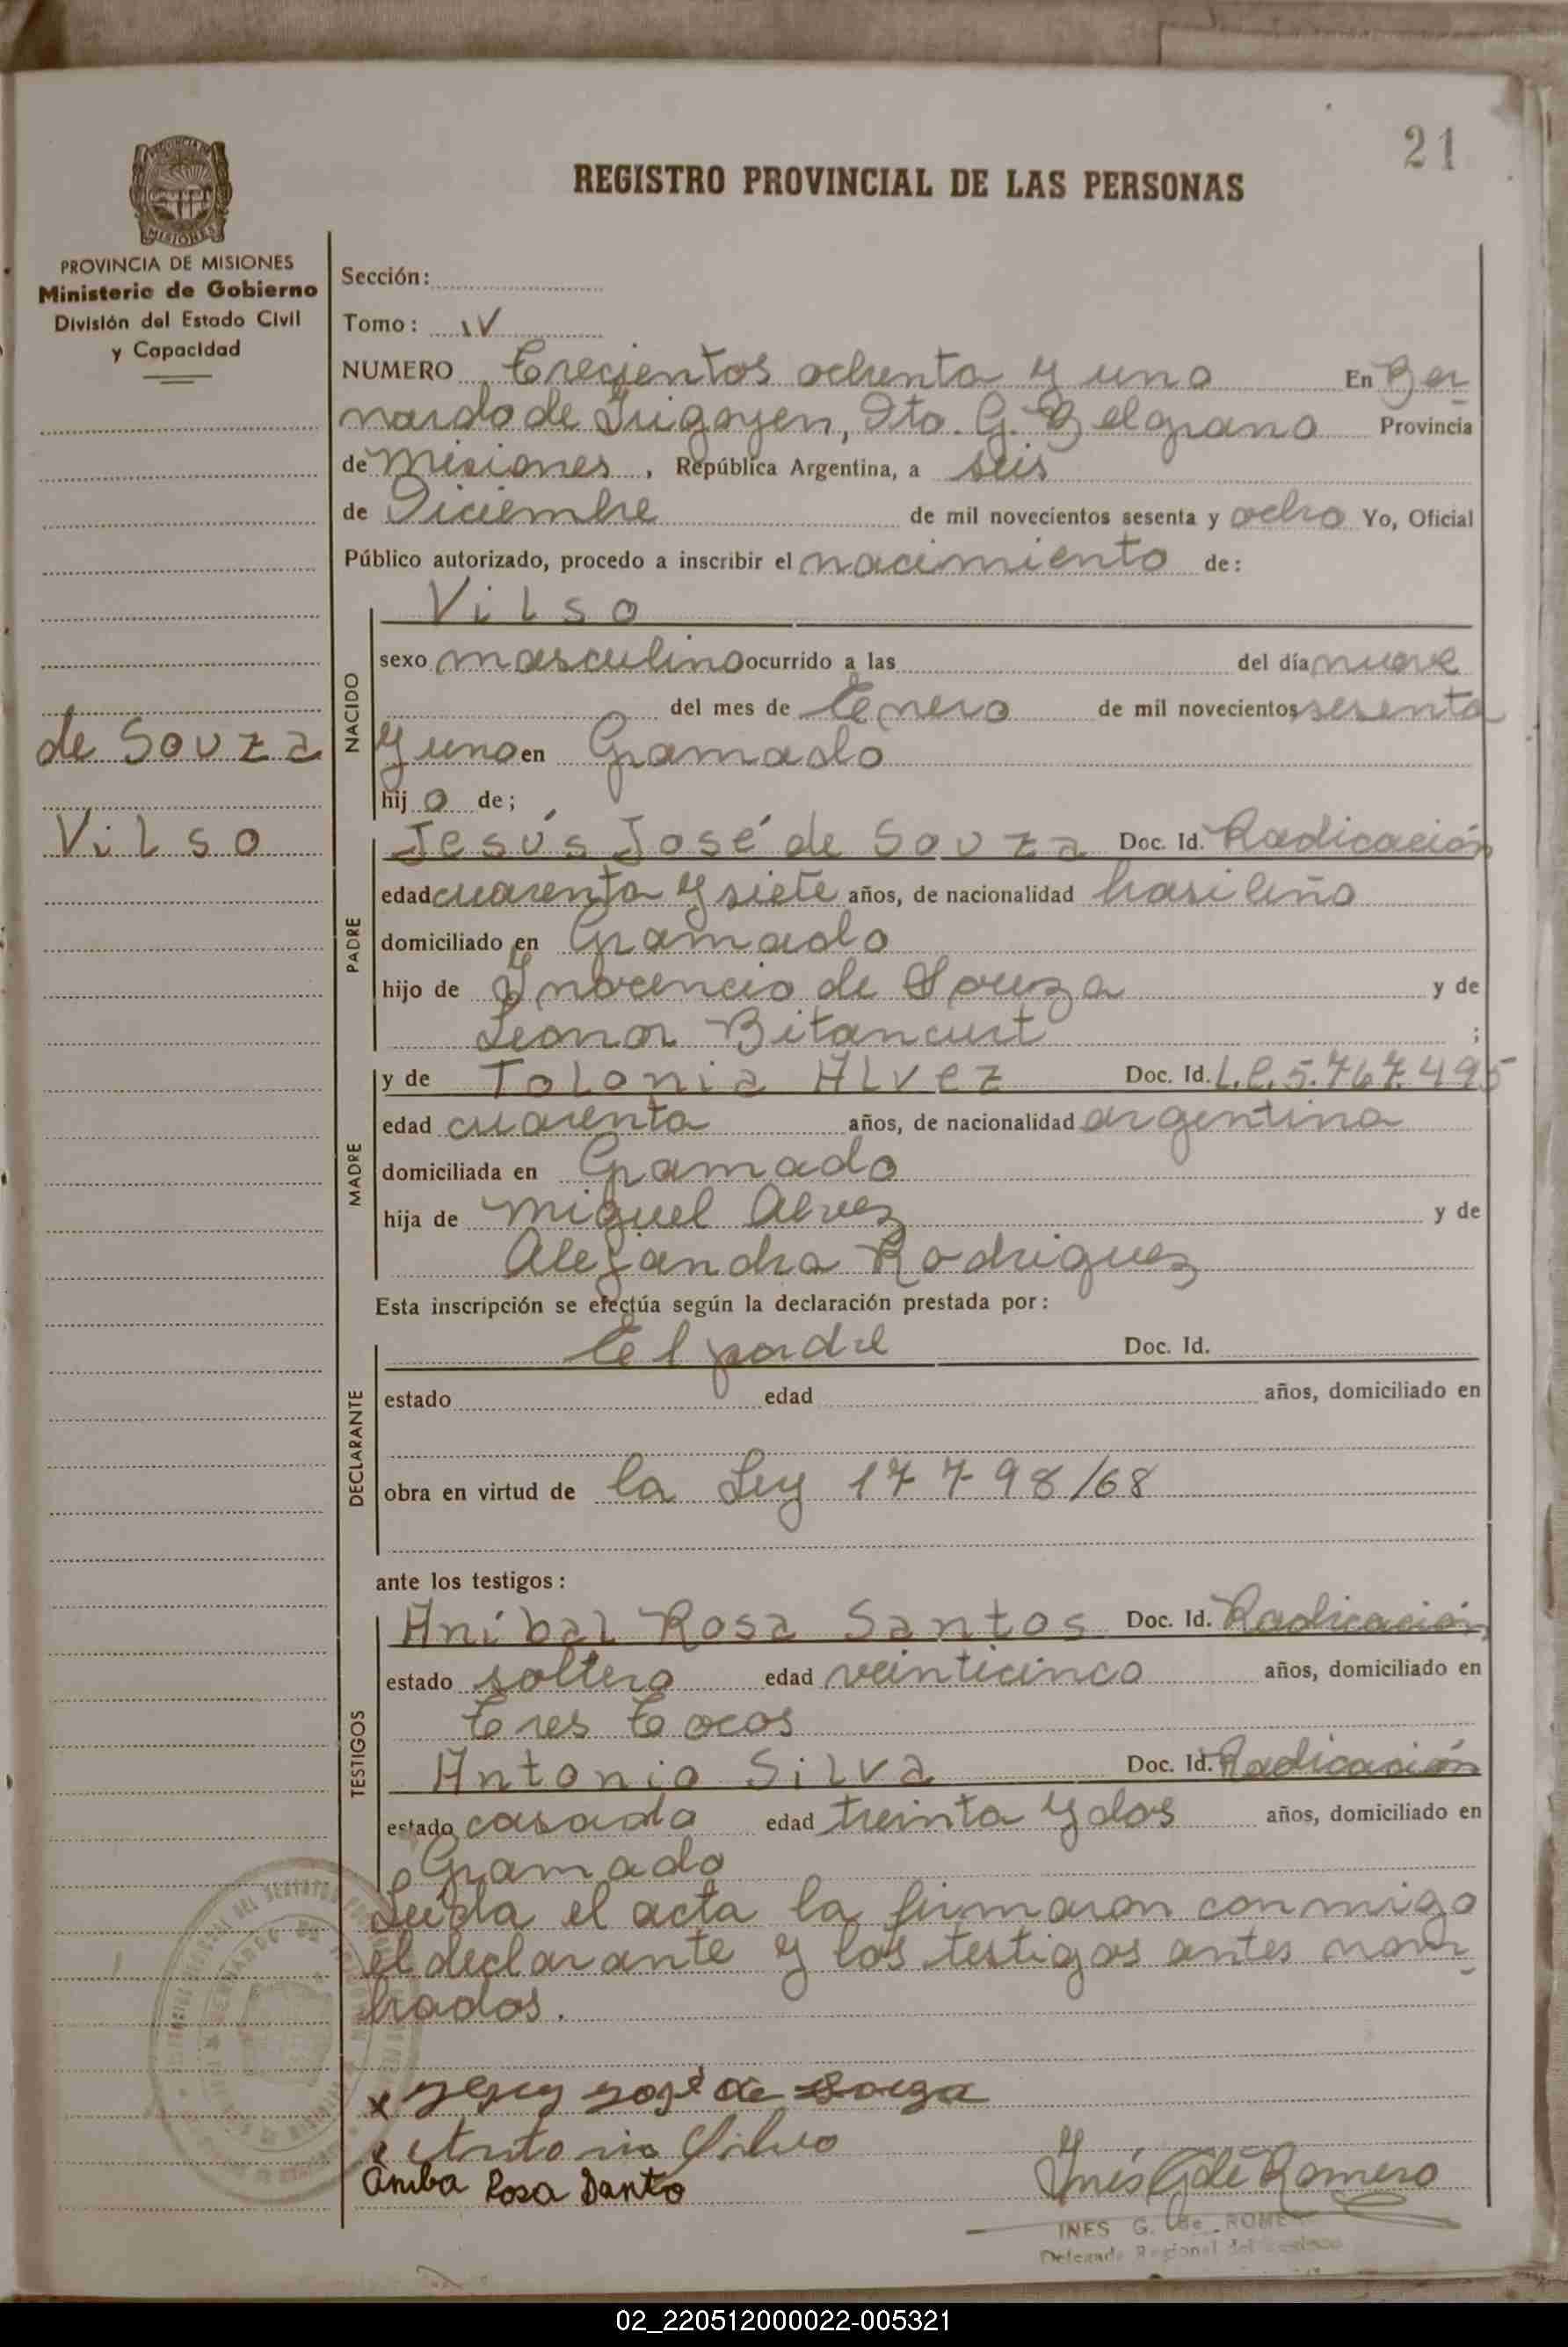 21
REGISTRO PROVINCIAL DE LAS PERSONAS
MISIONES
PROVINCIA DE MISIONES
Ministerio de Gobierno
División del Estado Civil
y Capacidad
de Souza
Vilso
Sección:
Tomo: IV
NUMERO Trecientos ochenta y uno En Ber
nardo de Irigoyen, Dto. G. Belgrano Provincia
de Misiones, República Argentina, a seis
de Diciembre de mil novecientos sesenta y ocho Yo, Oficial
Público autorizado, procedo a inscribir el nacimiento de:
NACIDO
Vilso
sexo masculino ocurrido a las del día nueve
del mes de Enero de mil novecientos sesenta
y uno en Gramado
hijo de;
PADRE
Jesús José de Souza Doc. Id. Radicación
edad cuarenta y siete años, de nacionalidad brasileño
domiciliado en Gramado
hijo de Inocencio de Souza y de
Leonor Bitancurt ;
MADRE
y de Tolonia Alvez Doc. Id. L.C. 5.767.495
edad cuarenta años, de nacionalidad argentina
domiciliada en Gramado
hija de Miguel Alvez y de
Alejandra Rodriguez
Esta inscripción se efectúa según la declaración prestada por:
DECLARANTE
El padre Doc. Id.
estado edad años, domiciliado en
obra en virtud de la Ley 17798/68
ante los testigos:
TESTIGOS
Aníbal Rosa Santos Doc. Id. Radicación
estado soltero edad veinticinco años, domiciliado en
Tres Tocos
Antonio Silva Doc. Id. Radicación
estado casado edad treinta y dos años, domiciliado en
Gramado
Leída el acta la firmaron conmigo
el declarante y los testigos antes nom
brados.
x José de Souza
x Antonio Silva
Aniba Rosa Santo
Inés G de Romero
INES G. de ROMERO
02_220512000022-005321